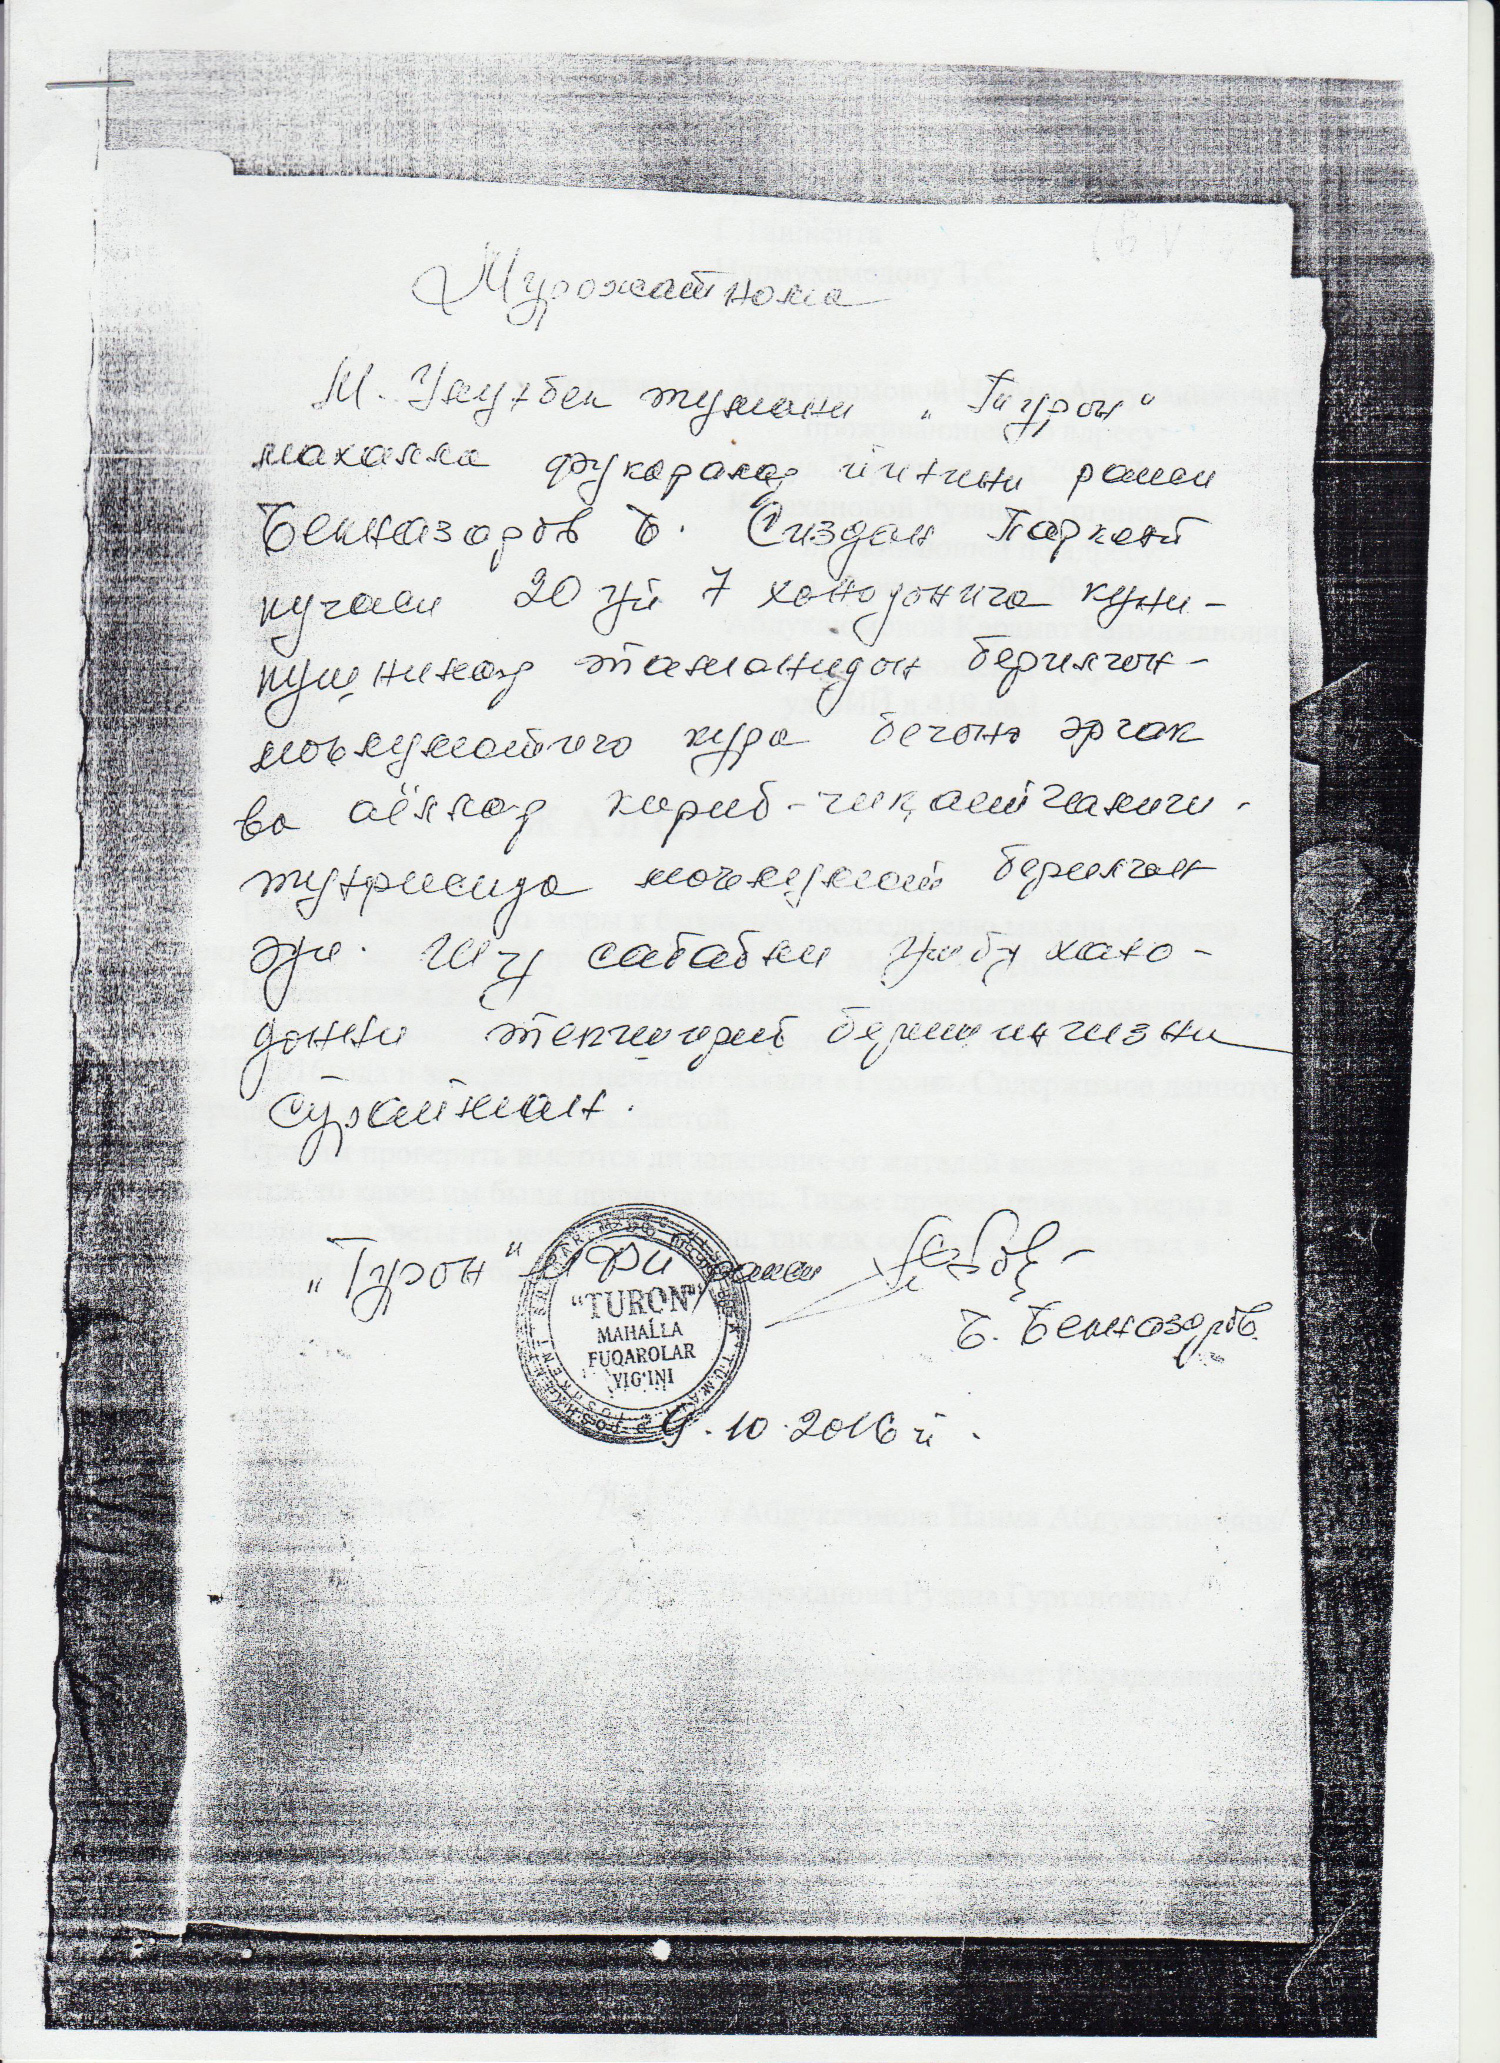 Мурожатнома
М. Улуғбек тумани „Турон“
махалла фукоралар йиғини раиси
Бекназаров Б. Сиздан Паркент
кучаси 20 уй 7 хонодонига куни-
кушнилар тамонидан берилган
маълумотига кура бегона эркак
ва аёллар кириб-чикаётганлиги
туғрисида маълумот берилган
эди. Шу сабабли ушбу хоно-
донни текшириб беришингизни
сўрайман.
„Турон“ МФЙ раиси
Б. Бекназаров
"TURON"
MAHALLA
FUQAROLAR
YIG'INI
9.10.2016 й.